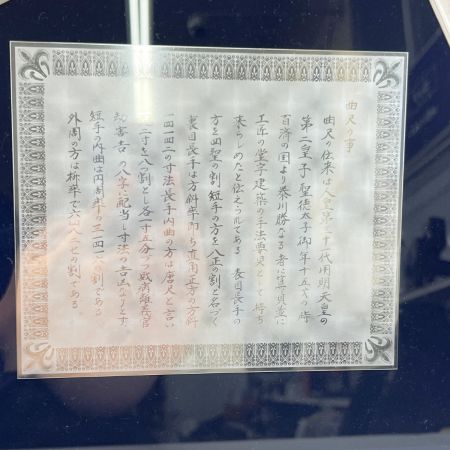 曲尺の事
曲尺の伝来は人皇第三十一代用明天皇の
第二皇子聖徳太子御年十五才の時
百済の国より秦川勝なる者に貢並に
工匠の堂宇建築の寸法要具として持ち
来らしめたと伝えられてある 表目長手の
方を四聖の割短手の方を八正の割と名づく
裏目長手は方斜率即ち直角正方の方斜
一四一四二の寸法長手内曲の方は唐尺と言い
二寸を八つ割とし各一寸五分づつ財病離義官
劫害吉の八字に配当し寸法の吉凶なりとす
短手の内曲は円周率の三一四一の割である
外周の方は斜率で六の割である